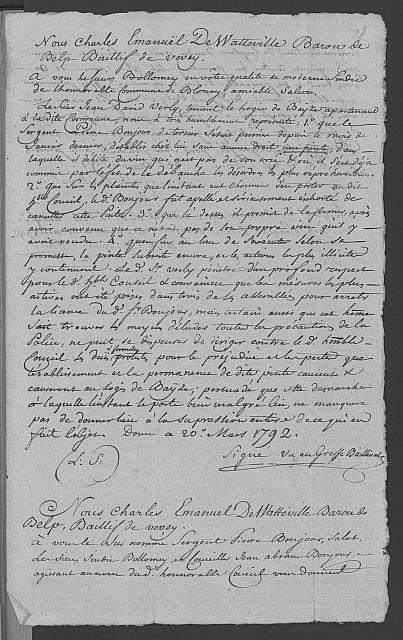 Nous Charles Emanuël De Watteville Baron de
Belp Baillif de vevey.
A vous le sieur Bollomey en votre qualité de moderne Sindic
de l'honorable Commune de Blonay, amiable Salut.
Le Sr Jean David Verly, tenant le logis de Baÿse apartenant
à la dite Commune, nous a très humblement représenté, 1º que le
Sergent Pierre Bonjour, de S'etoit permis depuis le mois de
Janvier dernier, d'établir chez lui sans aucun droit une pinte, dans
laquelle il débite du vin qui n'est pas de son crû & où il s'est déjà
commis par l'éfet de la débauche les désordres les plus
2º que sur les plaintes que l'instant eut l'honneur d'en porter au dit
Conseil, le d. Bonjour fut apellé et sérieusement exhorté de
cette pinte. 3º que là dessus il promit de la fermer, après
avoir convenu que ce n'etoit pas de son propre vin qu'il y
avoit vendu: 4º qu'ensuite au lieu de selon sa
promesse, la pinte subsiste encore, et les actions les plus illicites
y continuent: Le d. Sr Verly pénétré d'un profond respect
pour le d. Conseil & convaincu que les mesures les plus
actives ont été prises dans trois de ses assemblées pour arrêter
la licence du d. Sr Bonjour, mais certain aussi que cet homme
sait trouver les moyens d'éluder toutes les précautions de la
Police, ne peut se dispenser de diriger contre le d. honorable
Conseil les formelles protestes pour le préjudice et les pertes que
l'établissement et la permanence de dite pinte causent &
causeront au logis de Baÿse; persuadé que cette démarche
à laquelle l'instant se porte bien malgré lui, ne manquera
pas de donner lieu à la supression entiere de ce qui en
fait l'objet. Donné ce 20e Mars 1792.
(L. S.)
Signé vû au Greffe Baillival
Nous Charles Emanuel De Watteville Baron de
Belp, Baillif de vevey.
A vous le sus nommé Sergent Pierre Bonjour, Salut.
Les sieurs Sindic Bollomey, et Conseiller Jean Abram Bonjour,
agissant au nom du d. honorable Conseil vous donnent